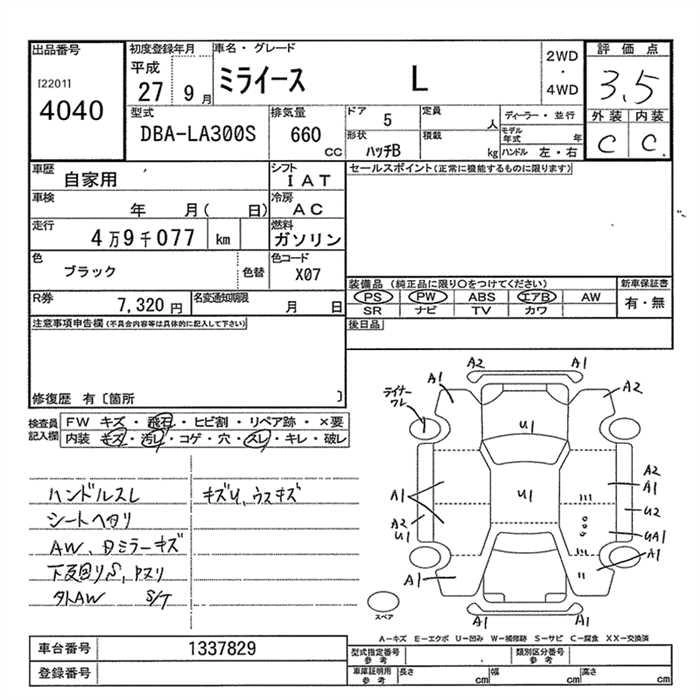 出品番号
[2201]
4040
初度登録年月
平成
27 9 月
車名・グレード
ミライース L
2WD
・
4WD
評価点
3.5
外装 内装
C C
型式
DBA-LA300S
排気量
660
CC
ドア
5
形状
ハッチB
定員
人
積載
kg
ディーラー・並行
モデル年式 年
ハンドル 左・右
車歴
自家用
シフト
IAT
車検
年 月( 日)
冷房
AC
走行
4万9千077 km
燃料
ガソリン
色
ブラック
色替
色コード
X07
R券
7,320 円
名変通知期限
月 日
セールスポイント(正常に機能するものに限ります)
装備品(純正品に限り○をつけてください)
PS PW ABS エアB AW
SR ナビ TV カワ
新車保証書
有・無
後日品
注意事項申告欄(不具合内容等は具体的に記入して下さい)
修復歴 有〔箇所 〕
検査員
記入欄
FW キズ・飛石・ヒビ割・リペア跡・×要
内装 キズ・汚レ・コゲ・穴・スレ・キレ・破レ
ハンドルスレ
シートヘタリ
AW、ミラーキズ
下廻りS
外AW S/T
キズU、ウスキズ
A2 A1
A1 A2
ライナー
ワレ
U1
U1
A1
A2
U1
A2
A1
U2
UA1
A1
A1
A1 A1
スペア
A-キズ E-エクボ U-凹み W-補修跡 S-サビ C-腐食 XX-交換済
車台番号
1337829
登録番号
型式指定番号
参考
類別区分番号
参考
車庫証明用
参考
長さ cm 幅 cm 高さ cm